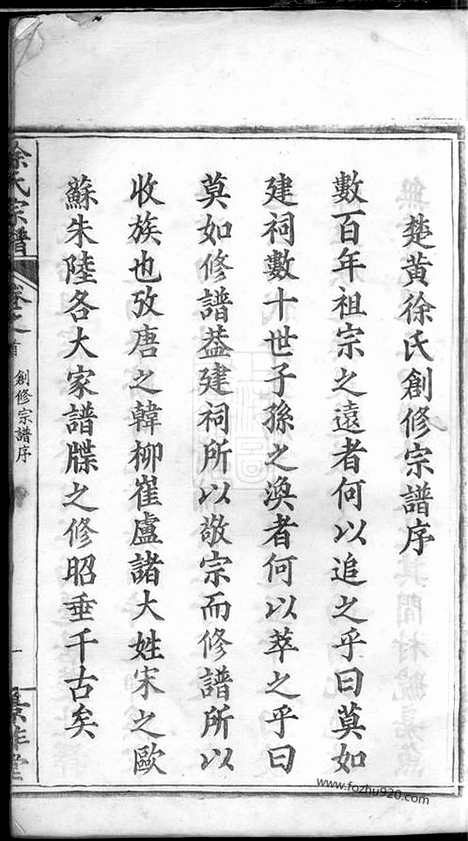 楚黃徐氏創修宗譜序
數百年祖宗之遠者何以追之乎曰莫如
建祠數十世子孫之渙者何以萃之乎曰
莫如修譜葢建祠所以敬宗而修譜所以
收族也攷唐之韓柳崔盧諸大姓宋之歐
蘇朱陸各大家譜牒之修昭垂千古矣
徐氏宗譜
卷之首
創修宗譜序
一
www.fozhu920.com